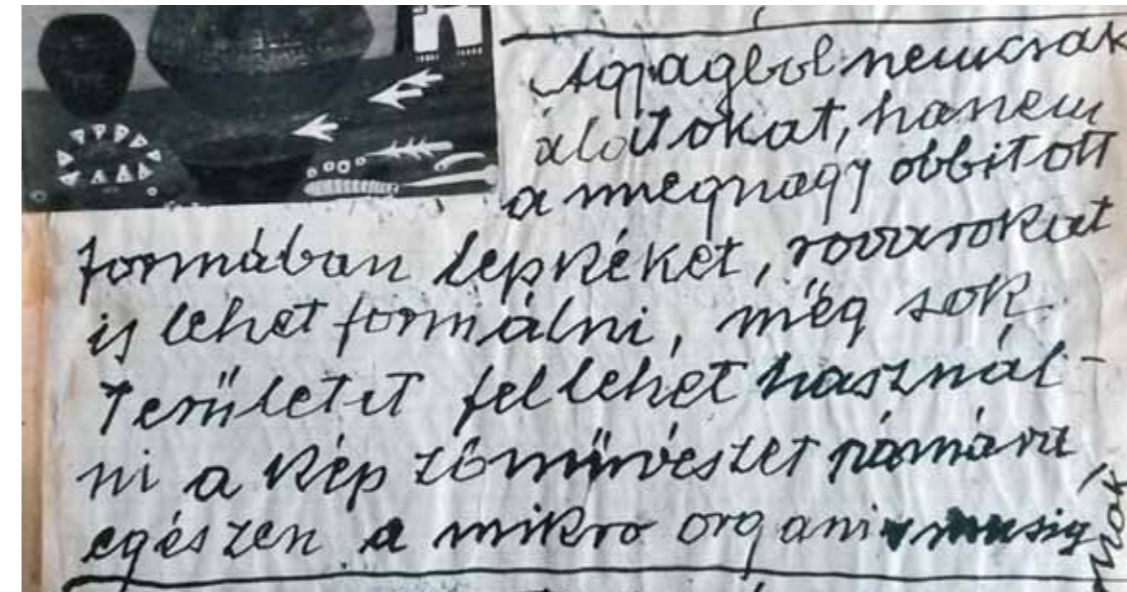 Agyagból nemcsak
álatokat, hanem
a megnagyobbított
formában lepkéket, rovarokat
is lehet formálni, még sok
Területet fel lehet használ-
ni a Képzőművészet számára
egészen a mikro organizmusig